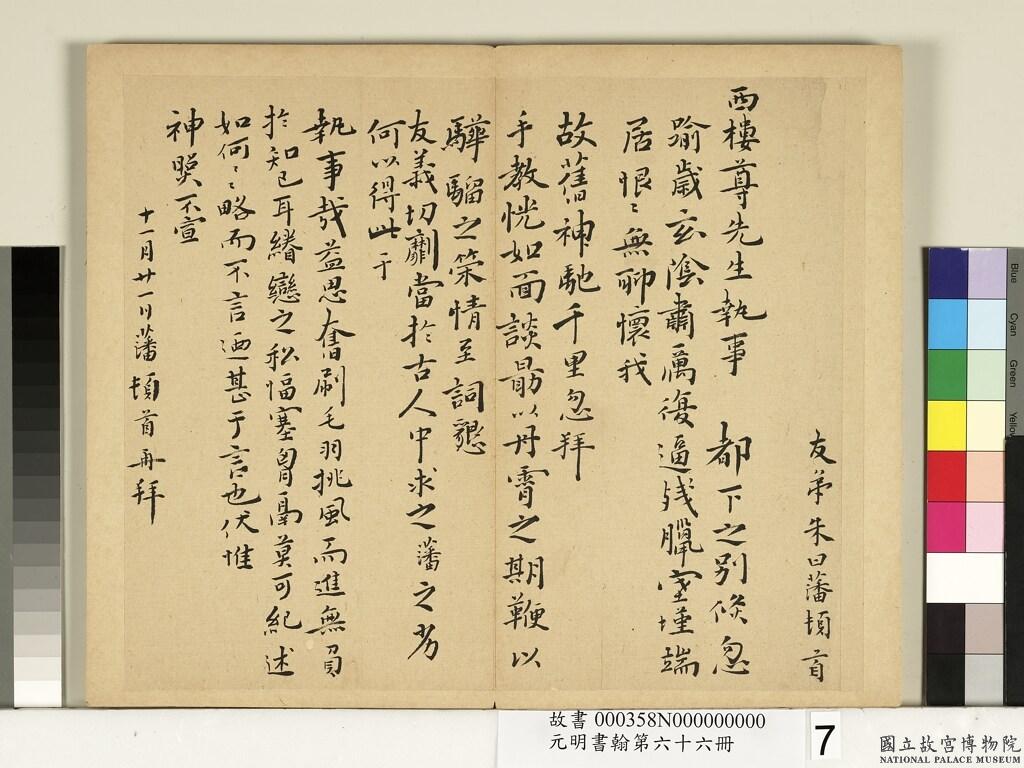 友弟朱曰藩頓首
西樓尊先生執事都下之別倐忽
踰歲玄陰肅厲復逼殘臘塞墐端
居恨〻無聊懷我
故舊神馳千里忽拜
手教恍如面談勗以丹霄之期鞭以
驊騮之策情至詞懇
友義切劘當於古人中求之藩之劣
何以得此于
執事哉益思奮刷毛羽挑風而進無負
於知己耳綣戀之私愊塞胷鬲莫可紀述
如何〻略而不言迺甚于言也伏惟
神照不宣
十一月廿一日藩頓首再拜
故書 000358N000000000
元明書翰第六十六冊
7
國立故宮博物院
NATIONAL PALACE MUSEUM
Blue
Cyan
Green
Yellow